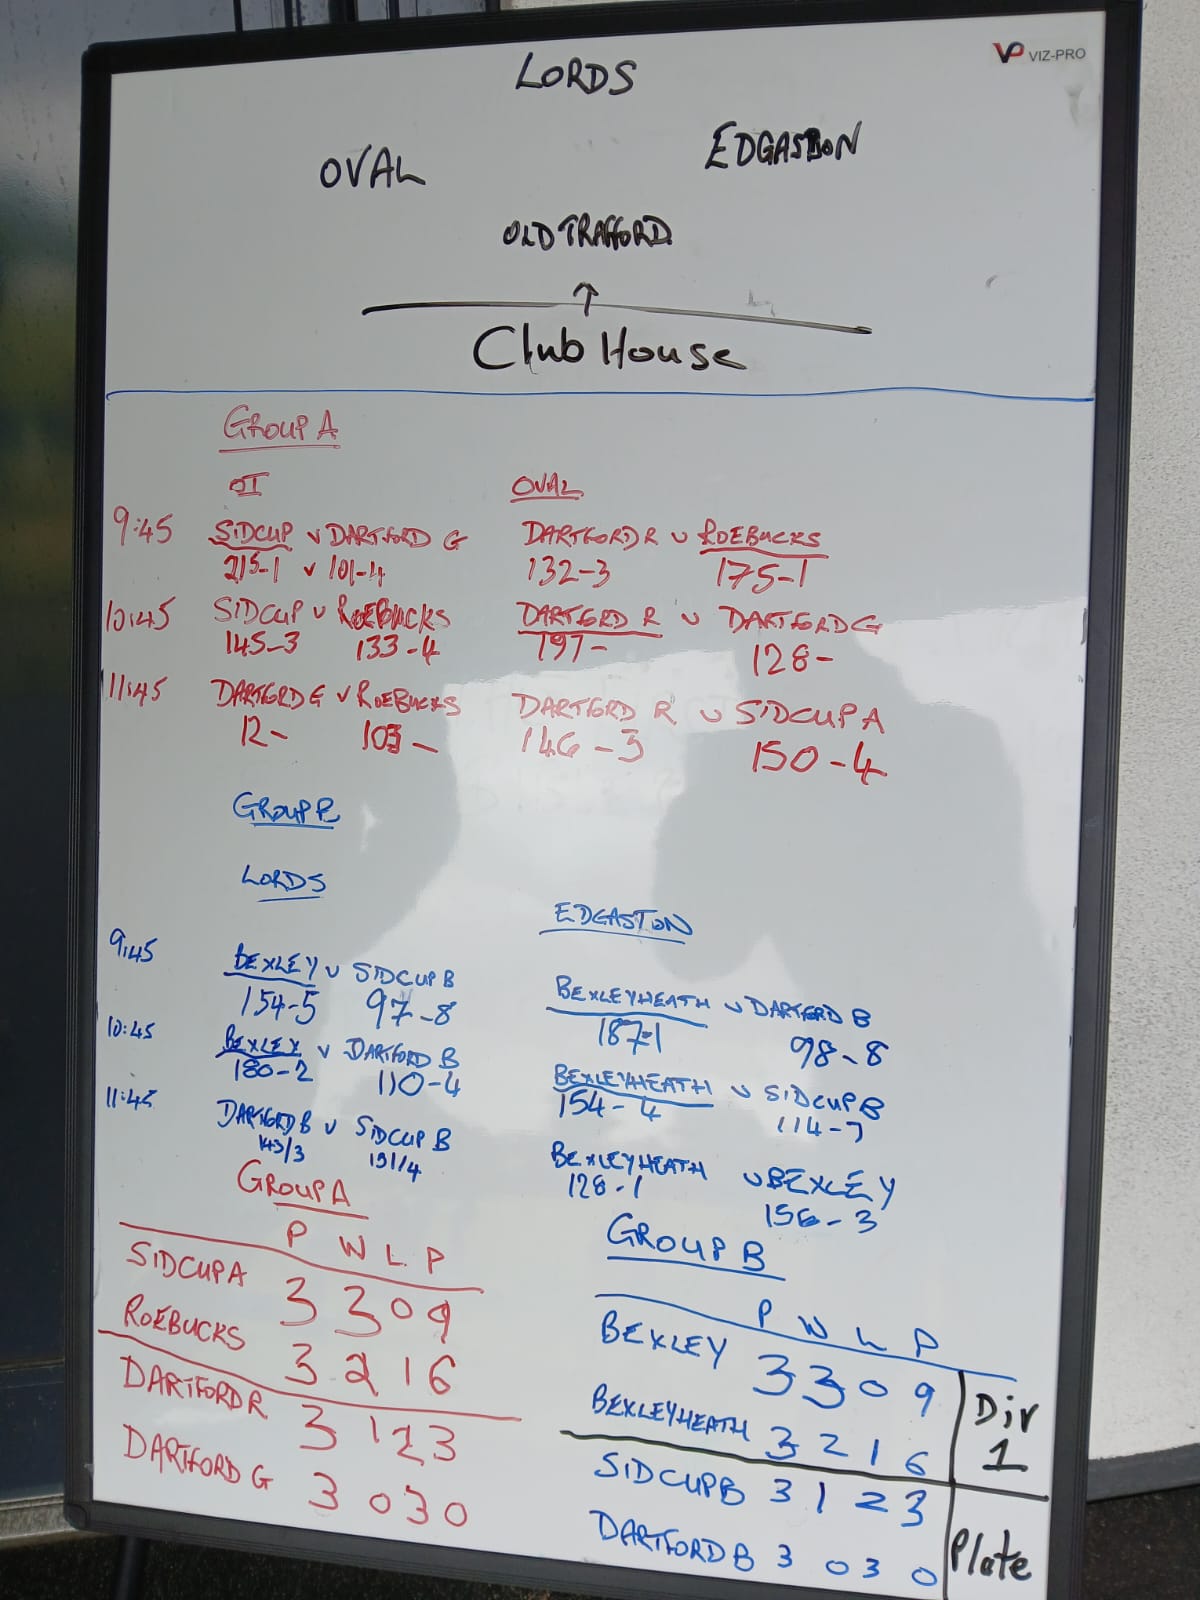 VP VIZ-PRO
LORDS
OVAL EDGASBON
OLD TRAFFORD
↑
Club House
GROUP A
OT OVAL
9:45 SIDCUP v DARTFORD G DARTFORD R v ROEBUCKS
215-1 v 101-4 132-3 175-1
10:45 SIDCUP v ROEBUCKS DARTFORD R v DARTFORD G
145-3 133-4 197- 128-
11:45 DARTFORD G v ROEBUCKS DARTFORD R v SIDCUP A
12- 103- 146-3 150-4
GROUP B
LORDS EDGASTON
9:45 BEXLEY v SIDCUP B BEXLEYHEATH v DARTFORD B
154-5 97-8 187-1 98-8
10:45 BEXLEY v DARTFORD B BEXLEYHEATH v SIDCUP B
180-2 110-4 154-4 114-7
11:45 DARTFORD B v SIDCUP B BEXLEYHEATH v BEXLEY
143/3 151/4 128-1 156-3
GROUP A
P W L P
SIDCUP A 3 3 0 9
ROEBUCKS 3 2 1 6
DARTFORD R 3 1 2 3
DARTFORD G 3 0 3 0
GROUP B
P W L P
BEXLEY 3 3 0 9
BEXLEYHEATH 3 2 1 6
Div
1
SIDCUP B 3 1 2 3
DARTFORD B 3 0 3 0
Plate